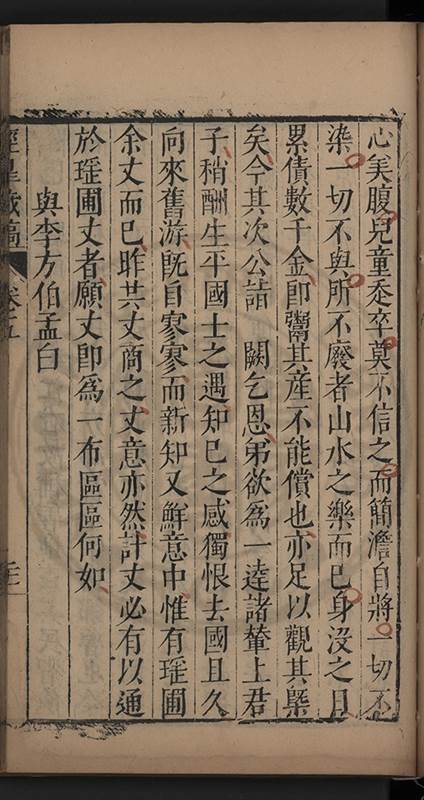 心羙腹兒童𡗝卒莫不信之而簡澹自將一切不
染一切不與所不廢者山水之樂而已身沒之日
累債數千金卽鬻其產不能償也亦足以觀其槩
矣今其次公詣 闕乞恩弟欲為一達諸輦上君
子稍酬生平國士之遇知已之感獨恨去國且久
向來舊游既自寥寥而新知又鮮意中惟有瑶圃
余丈而已昨其丈商之丈意亦然計丈必有以通
於瑶圃丈者願丈卽為一布區區何如
與李方伯孟白
藏稿 卷之五